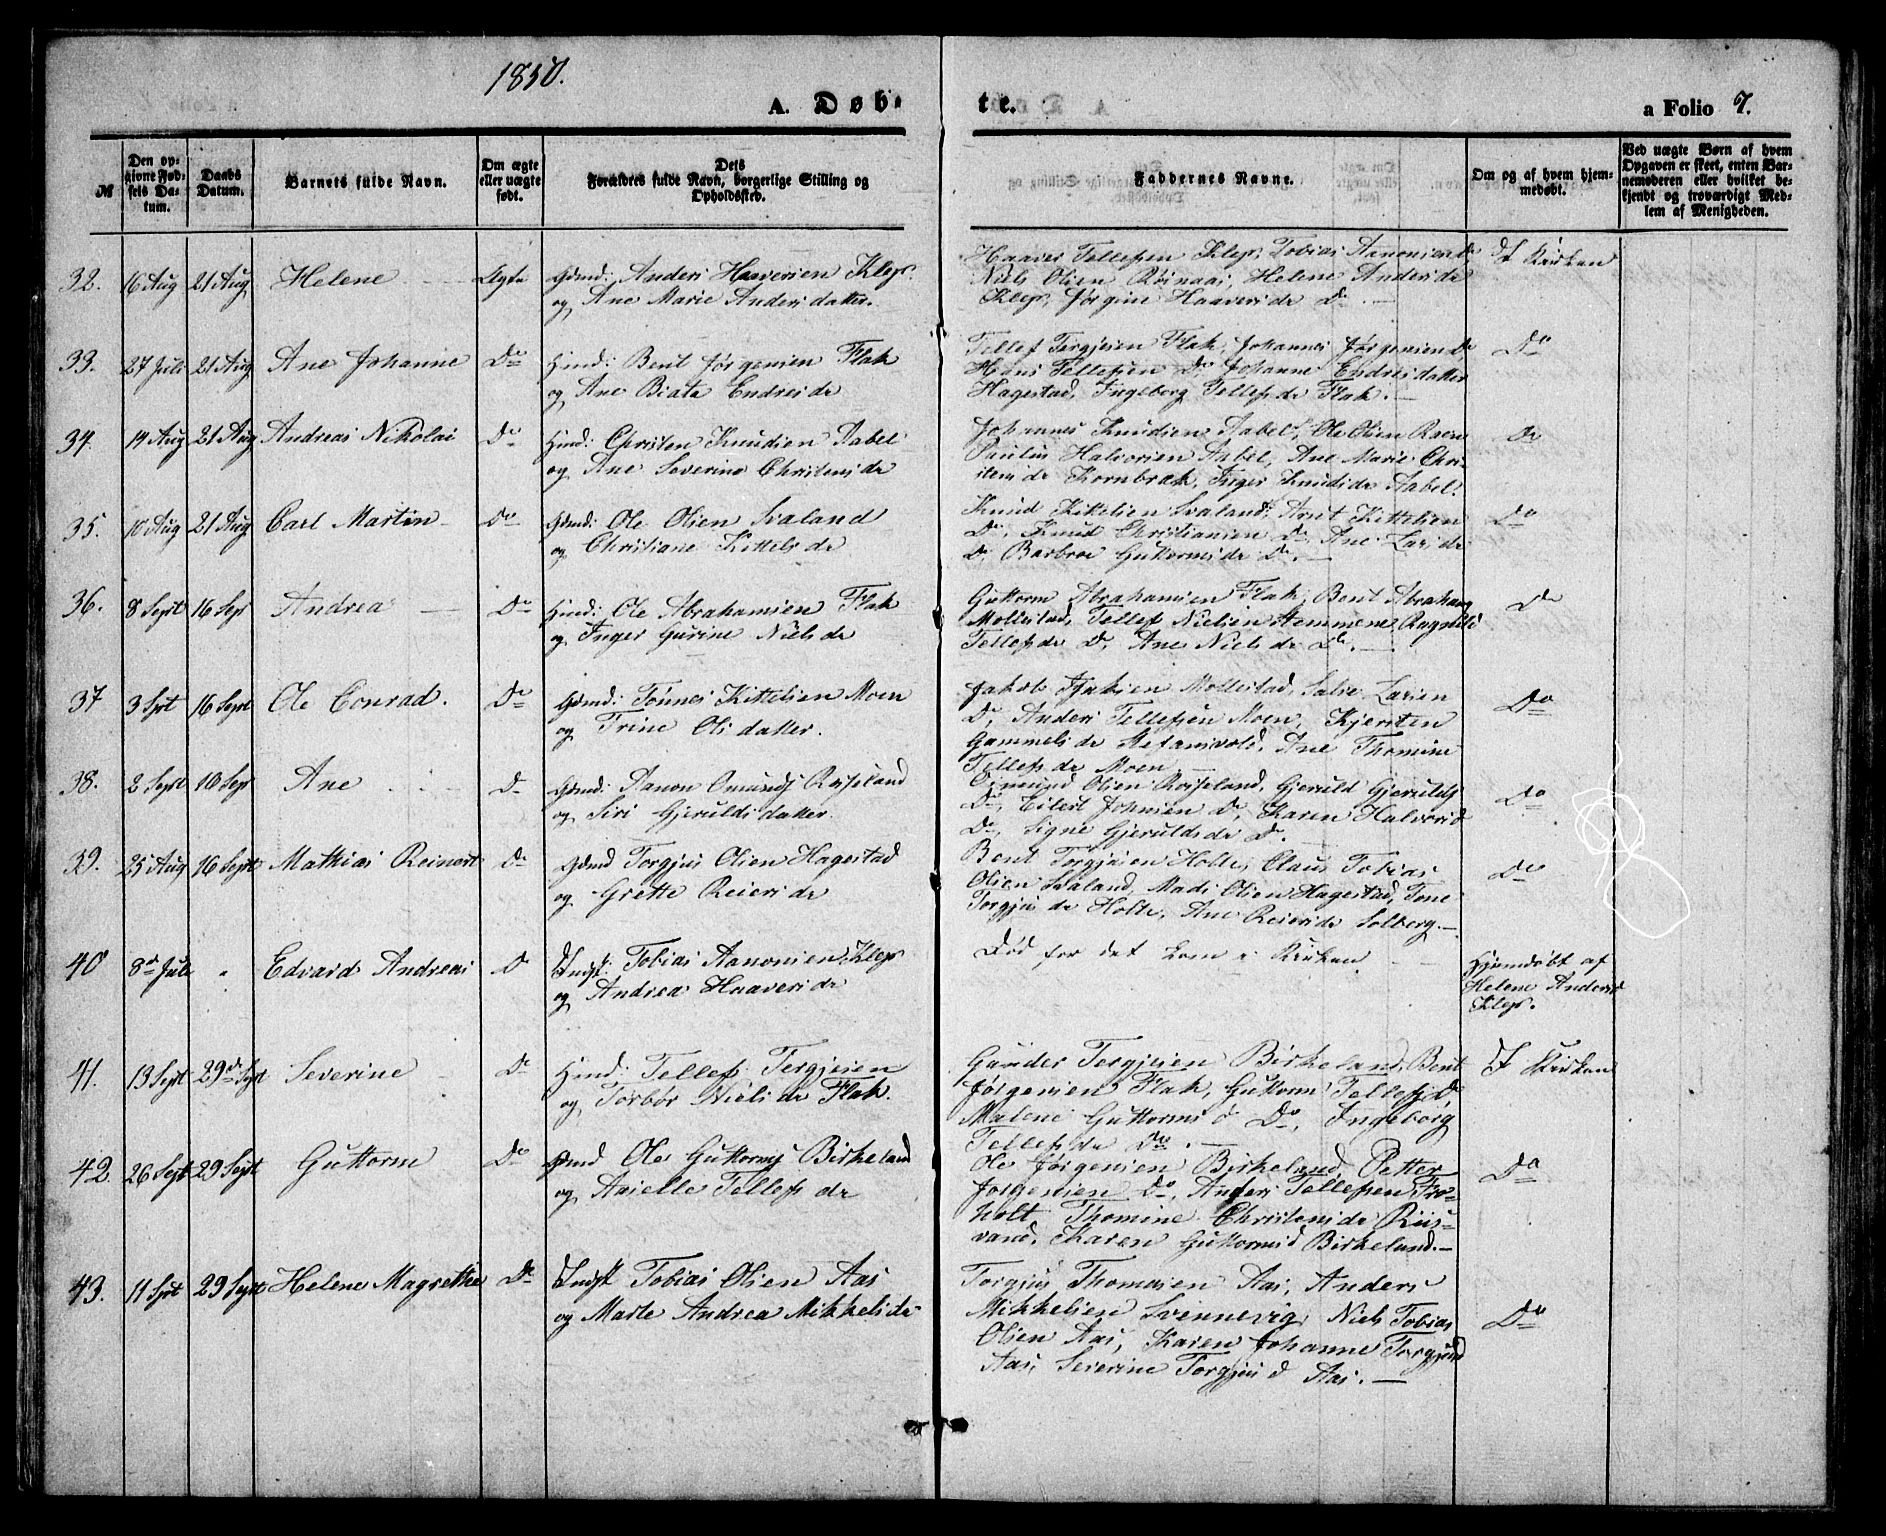 1850.
A. Døb-
te.
a Folio 7.
№
Den op-
givne Fød-
sels Da-
tum.
Daabs
Datum.
Barnets fulde Navn.
Om ægte
eller uægte
født.
Dets
Forældres fulde Navn, borgerlige Stilling og
Opholdssted.
Faddernes Navne.
Om og af hvem hjem-
medøbt.
Ved uægte Børn af hvem
Opgaven er skeet, enten Bar-
nemoderen eller hvilket be-
kjendt og troværdigt Med-
lem af Menigheden.
32. 16 Aug 21 Aug Helene Ægte
Gdmd: Anders Haaversen Klep
og Ane Marie Andersdatter.
Haaver Tellefsen Klep, Tobias Aanonsen Do
Niels Olsen Røinaas, Helene Anders dr
Klep, Jørgine Haavers dr Do.
I Kirken
33. 27 Juli 21 Aug Ane Johanne Do
Hmd: Bent Jørgensen Flak
og Ane Beata Endres dr
Tellef Tergjesen Flak, Johannes Jørgensen Do
Hans Tellefsen Do Johanne Endresdatter
Hagestad, Ingeborg Tellefs dr Flak.
Do
34. 14 Aug 21 Aug Andreas Nikolai Do
Hmd: Christen Knudsen Aabel
og Ane Severine Christens dr
Johannes Knudsen Aabel, Ole Olsen Raen
Paulus Halvorsen Aabel, Ane Marie Chri-
stens dr Kornbrak, Inger Knuds dr Aabel.
Do
35. 10 Aug 21 Aug Carl Martin Do
Gdmd: Ole Olsen Svaland
og Christiane Kittels dr
Knud Kittelsen Svaland, Arnt Kittelsen
Do, Knud Christiansen Do, Ane Lars dr
Do Barbroe Guttorms dr Do.
Do
36. 8 Sept 16 Sept Andrea Do
Hmd: Ole Abrahamsen Flak
og Inger Gurine Niels dr
Guttorm Abrahamsen Flak, Bent Abraham
Mollestad, Tellef Nielsen Stemmene Ragnild
Tellefs dr Do, Ane Niels dr Do.
Do
37 3 Spt 16 Sept Ole Conrad. Do
Gdmd: Tønnes Kittelsen Moen
og Trine Olsdatter.
Jakob Isaksen Mollestad, Salve Larsen
Do, Anders Tellefsen Moen, Kjersten
Gammels dr Stefansvold, Ane Thomine
Tellefs dr Moen
Do
38. 2 Sept 16 Sep Ane Do
Gdmd: Aanon Omunds Røiseland
og Siri Gjeruldsdatter.
Osmund Olsen Røiseland, Gjeruld Gjerulds
Do, Eilert Do, Karen Halvorsd
Do, Signe Gjerulds dr Do.
Do
39. 25 Aug 16 Sept Mathias Reinert Do
Gdmd Torgjus Olsen Hagestad
og Grette Reiers dr
Bent Torgjusen Holte, Claus Tobias
Olsen Svaland, Mads Olsen Hagestad, Tone
Torgjus dr Holte, Ane Reiers dr Solberg.
Do
40 8de Juli " Edvard Andreas Do
Indst: Tobias Aanonsen Klep
og Andrea Haavers dr
Død før det kom i Kirken
Hjemdøbt af
Helene Andersd
Klep.
41. 13 Sept 29de Sept Severine Do
Hmd: Tellef Tergjesen
og Torbør Niels dr Flak.
Gunder Tergjesen Birkeland, Bent
Jørgensen Flak, Guttorm Tellefs Do
Malene Guttorms d Do, Ingeborg
Tellefs dr Do.
I Kirken
42. 26 Sept 29 Sept Guttorm Do
Gdmd Ole Guttorms Birkeland
og Asielle Tellefs dr
Ole Jørgensen Birkeland, Petter
Jørgensen Do, Anders Tellefsen Fro-
holt Thomine Christens dr Riis-
vand, Karen Guttormsd Birkeland.
Do
43. 11 Spt 29 Sept Helene Magrethe Do
Indst Tobias Olsen Aas
og Marte Andrea Mikkels dr
Torgjus Thomasen Aas, Anders
Mikkelsen Svennevig, Niels Tobias
Olsen Aas, Karen Johanne Torgjusd
Aas, Severine Torgjus d Aas.
Do